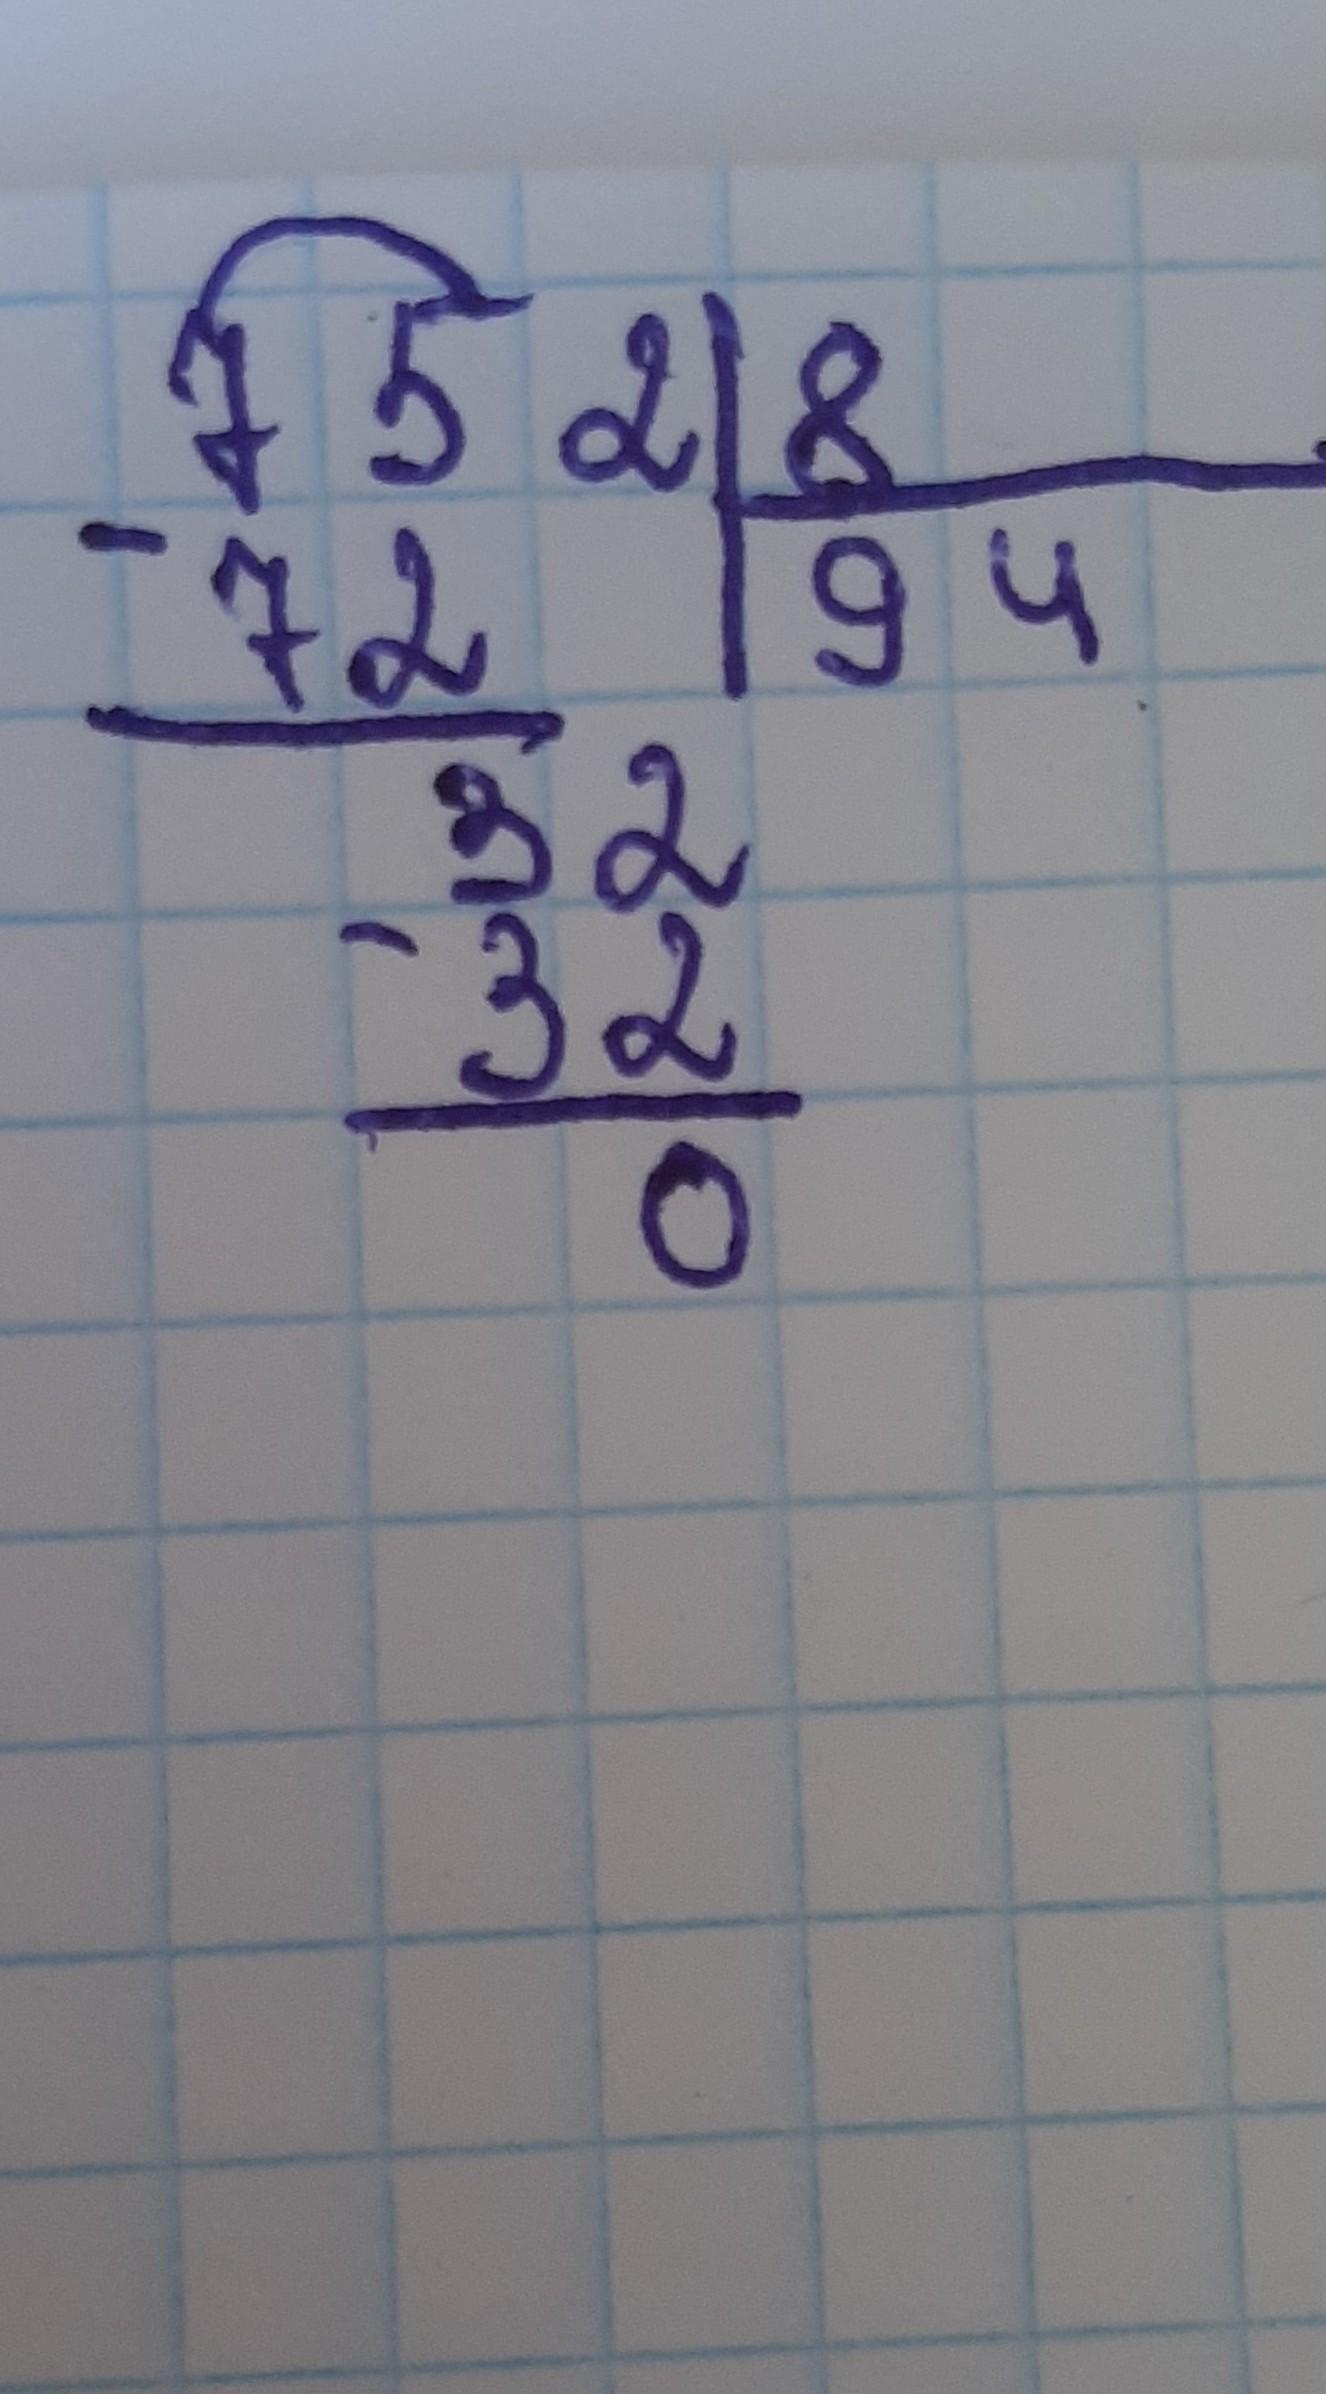 752|8
-72 94
32
-32
0